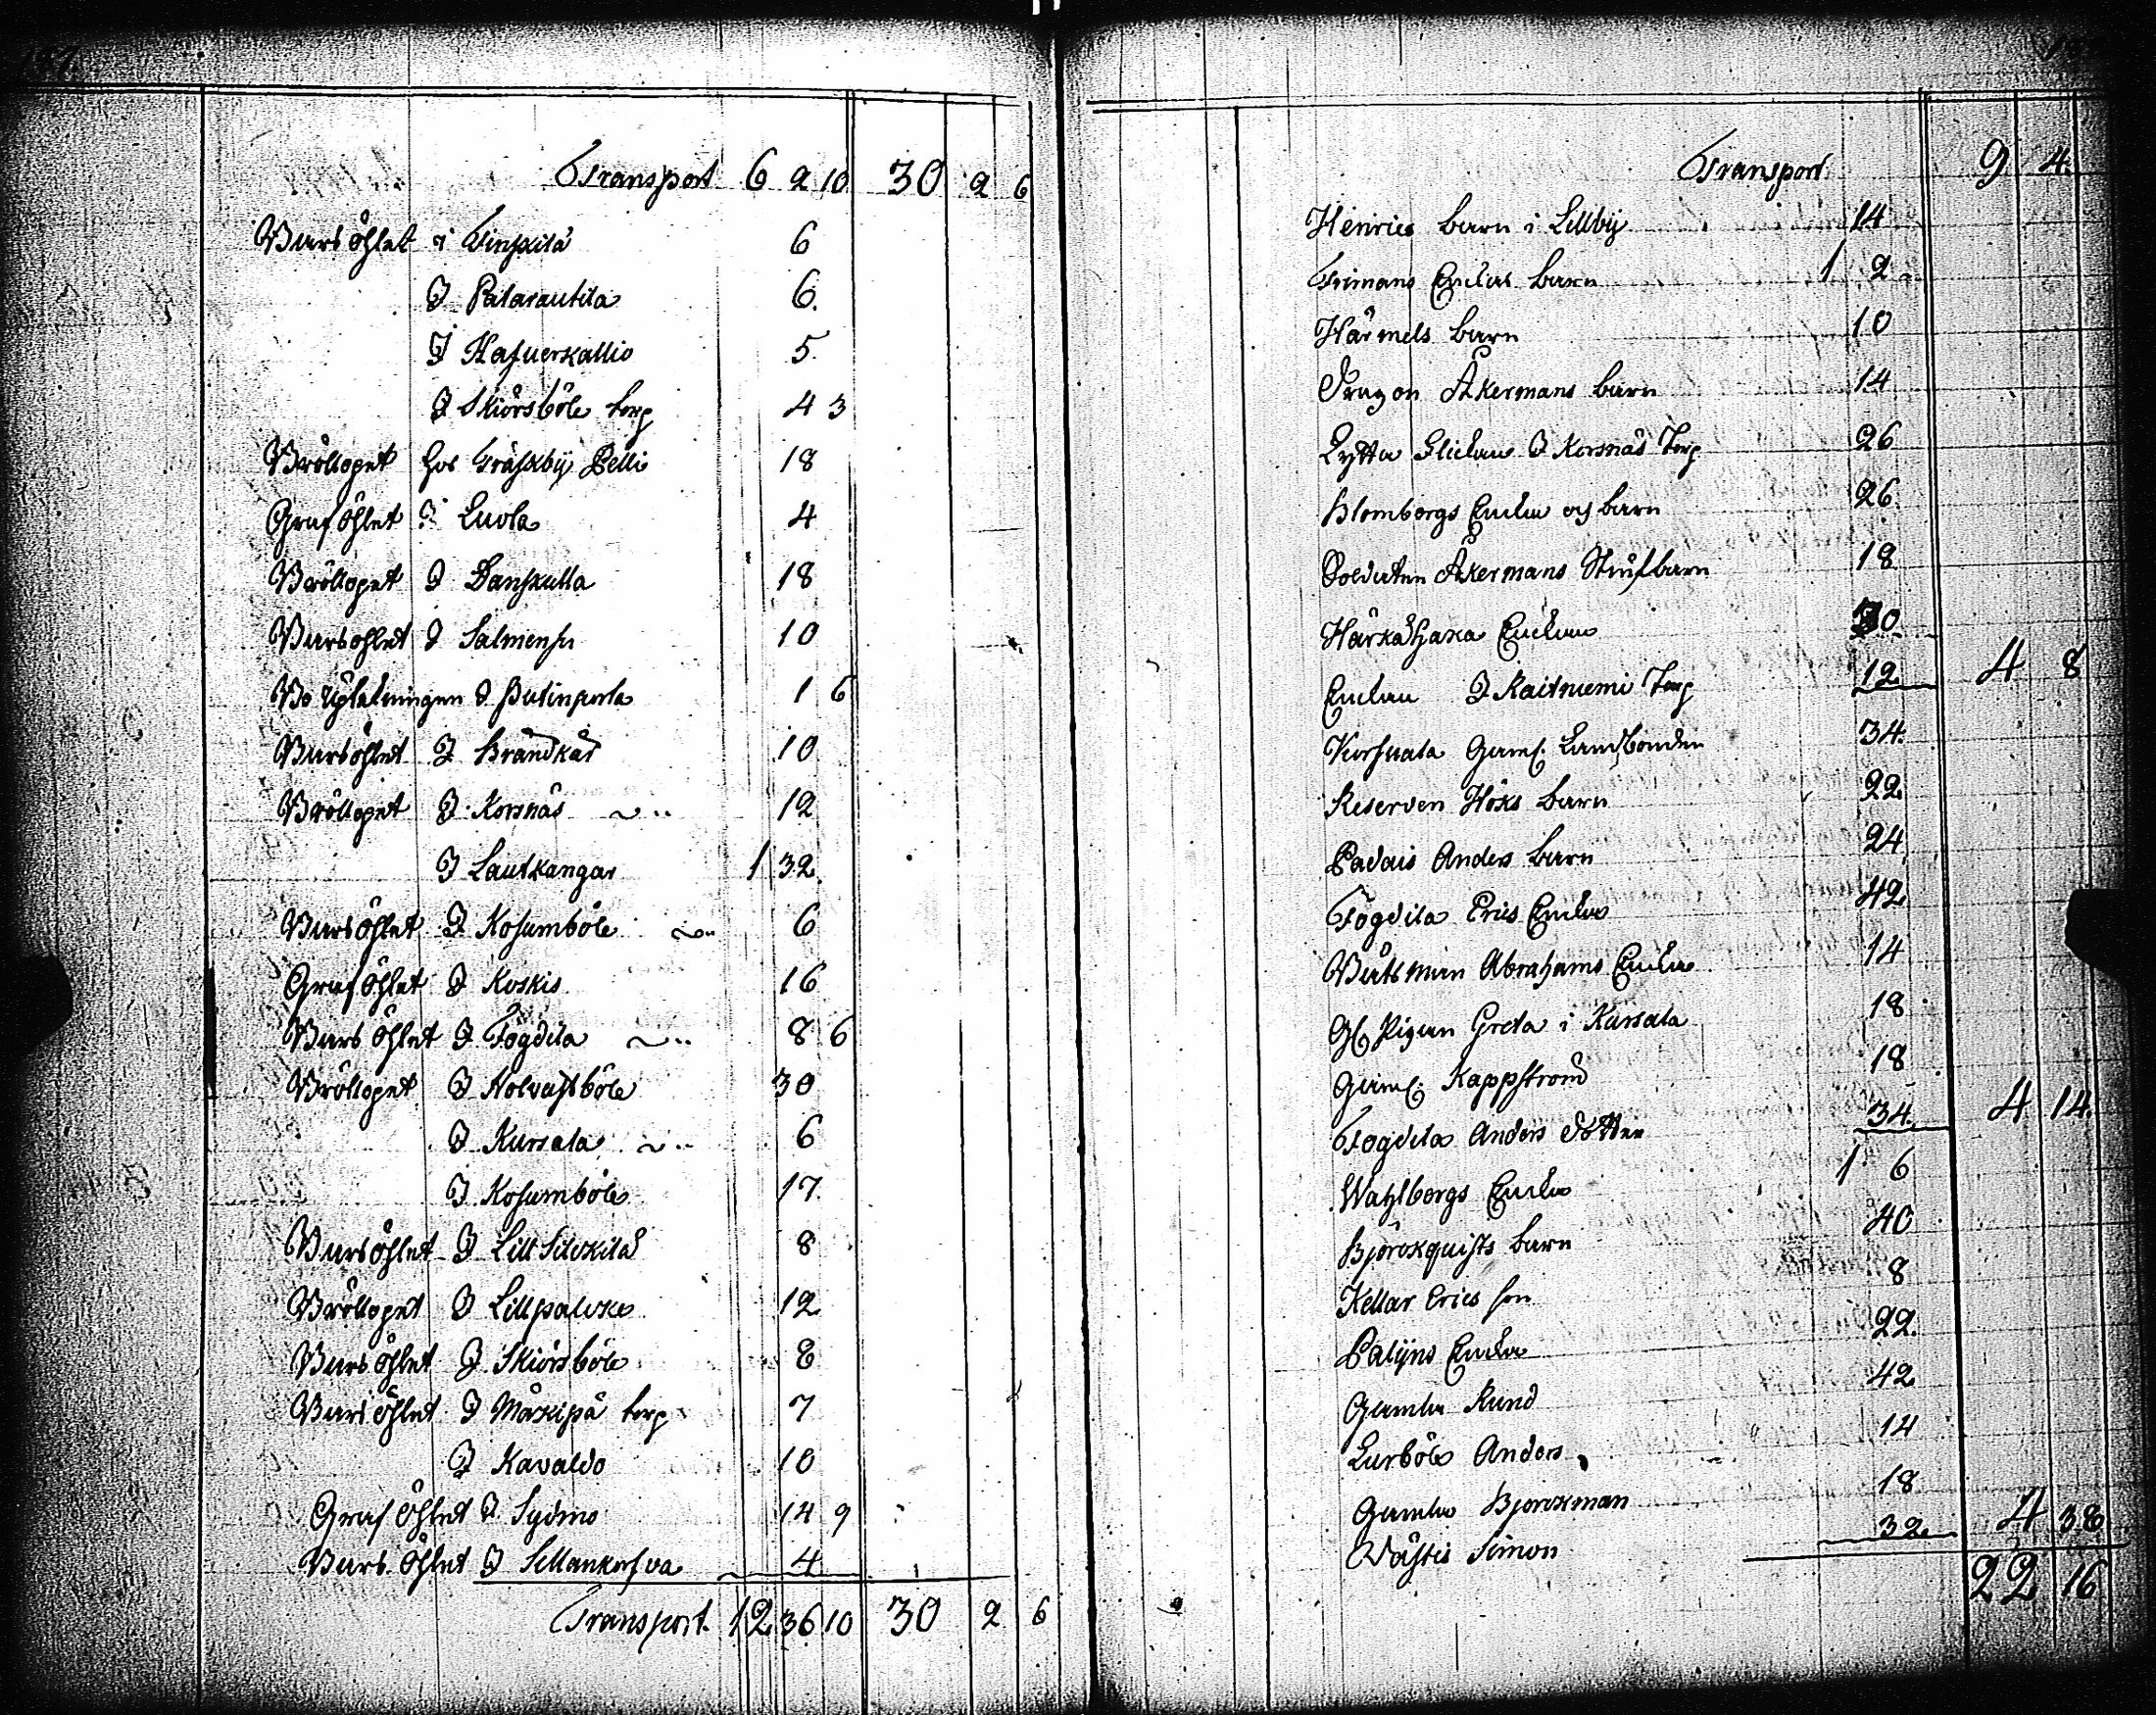 Transport 6 2 10 30 2 6
Barsöhlet i Finskilä 6
I Patarautila 6.
I Hasuerkallio 5
I Skiörsböle torp 4 3
Bröllopet hos Gräsxbÿ Pelli 18
Graföhlet I Luola 4
Bröllopet I Danskulla 18
Barsöhlet I Salmensu 10
1 6
Barsöhlet I Brandkär 10
Bröllopet I Korsnäs 12
I Lautkangar 1 32
Barsöhlet I Kosumböle 6
Graföhlet I Koskis 16
Barsöhlet I Fogdila 8 6
Bröllopet I Nolvastböle 30
I Kursala 6
I Kosumböle 17
Barsöhlet I Lill Silckilä 8
Bröllopet I Lillpalcke 12
Barsöhlet I Skiörsböle 8
Barsöhlet I Mäkipä torp 7
I Kavaldo 10
Graföhlet I Sydmo 14 9
Barsöhlet I Sillankorfva 4
Transport. 12 36 10 30 2 6
Transport 9 4
Henrics barn i Lillbÿ 14
Frimans Enckas barn 1 2
Härmels barn 10
Dragon Åkermans barn 14
Lytta Flickan I Korsnäs Torp 26
Blombergs Encka och barn 26
Soldaten Åkermans Stiufbarn 18
Härkähaka Enckan
Enckan I Raitniemi Torp 12 4 8
Gaml. Landbonden 34
Reserven Höks barn 22
Padais Anders barn 24
Fogdila Erics Encka 42
Båtsman Abrahams Encka 14
Gl Pigan Greta i Kursala 18
Gaml. Kappström 18
Fogdila Anders dotter 34 4 14
Wahlbergs Encka 1 6
Björckquists barn 40
Kellar Erics son 8
Palijns Encka 22
Gamla Rund 42
Lurböle Anders 14
Gamla Björckman 18
Wästis Simon 32 4 38
22 16